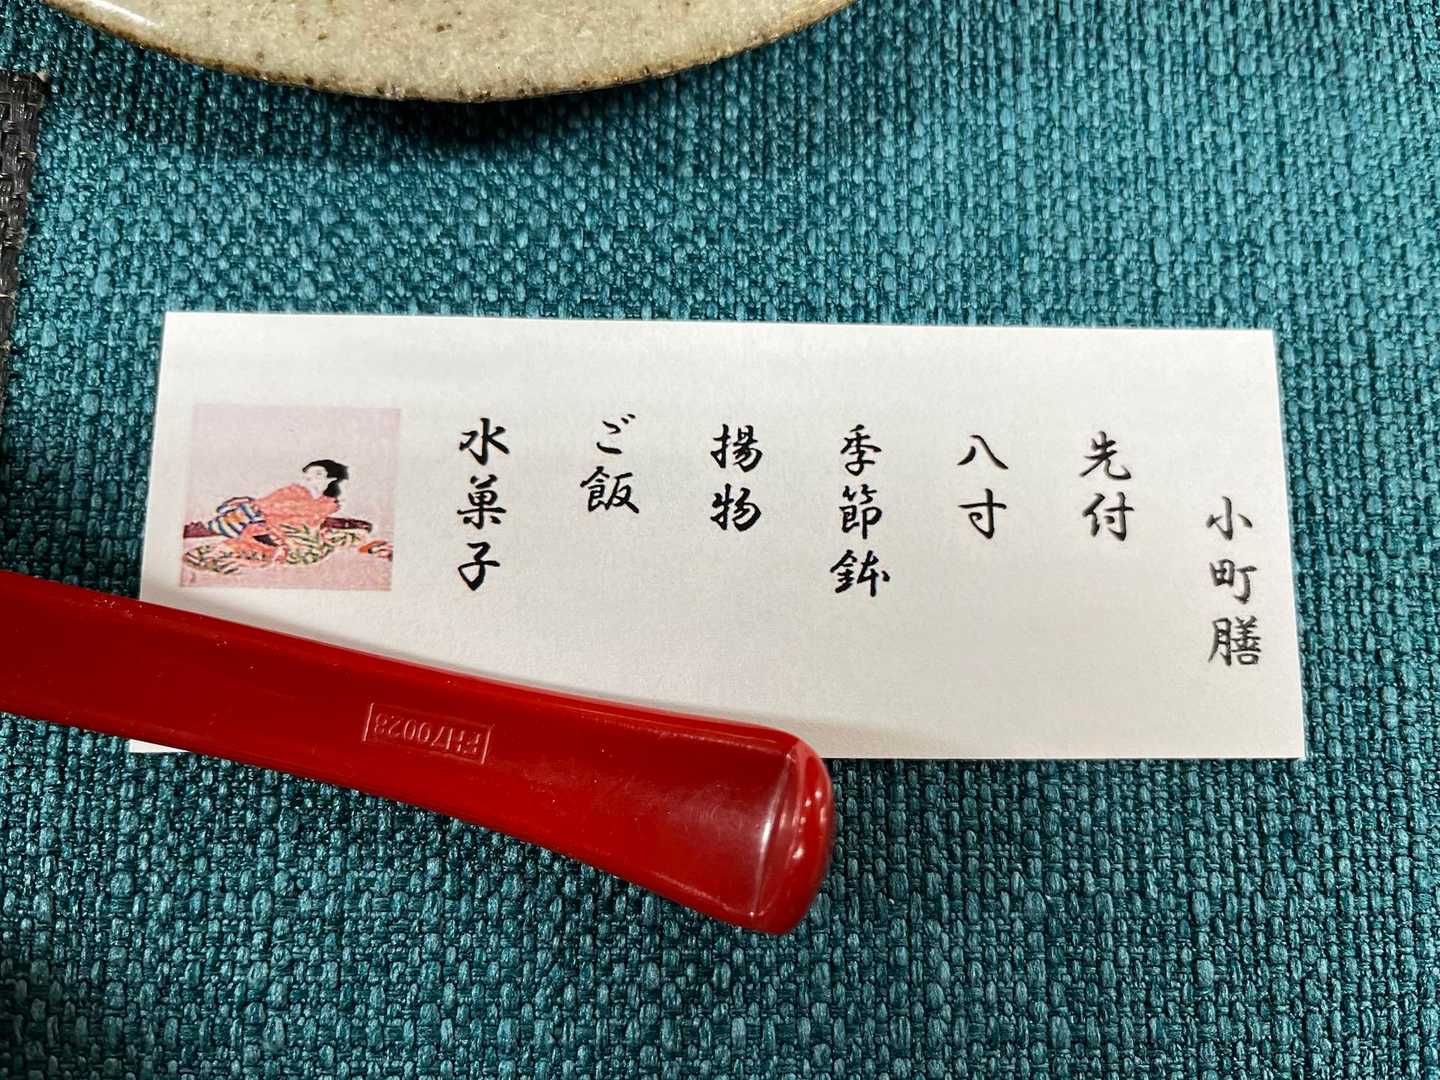 小町膳
先付
八寸
季節鉢
揚物
ご飯
水菓子
FH70028